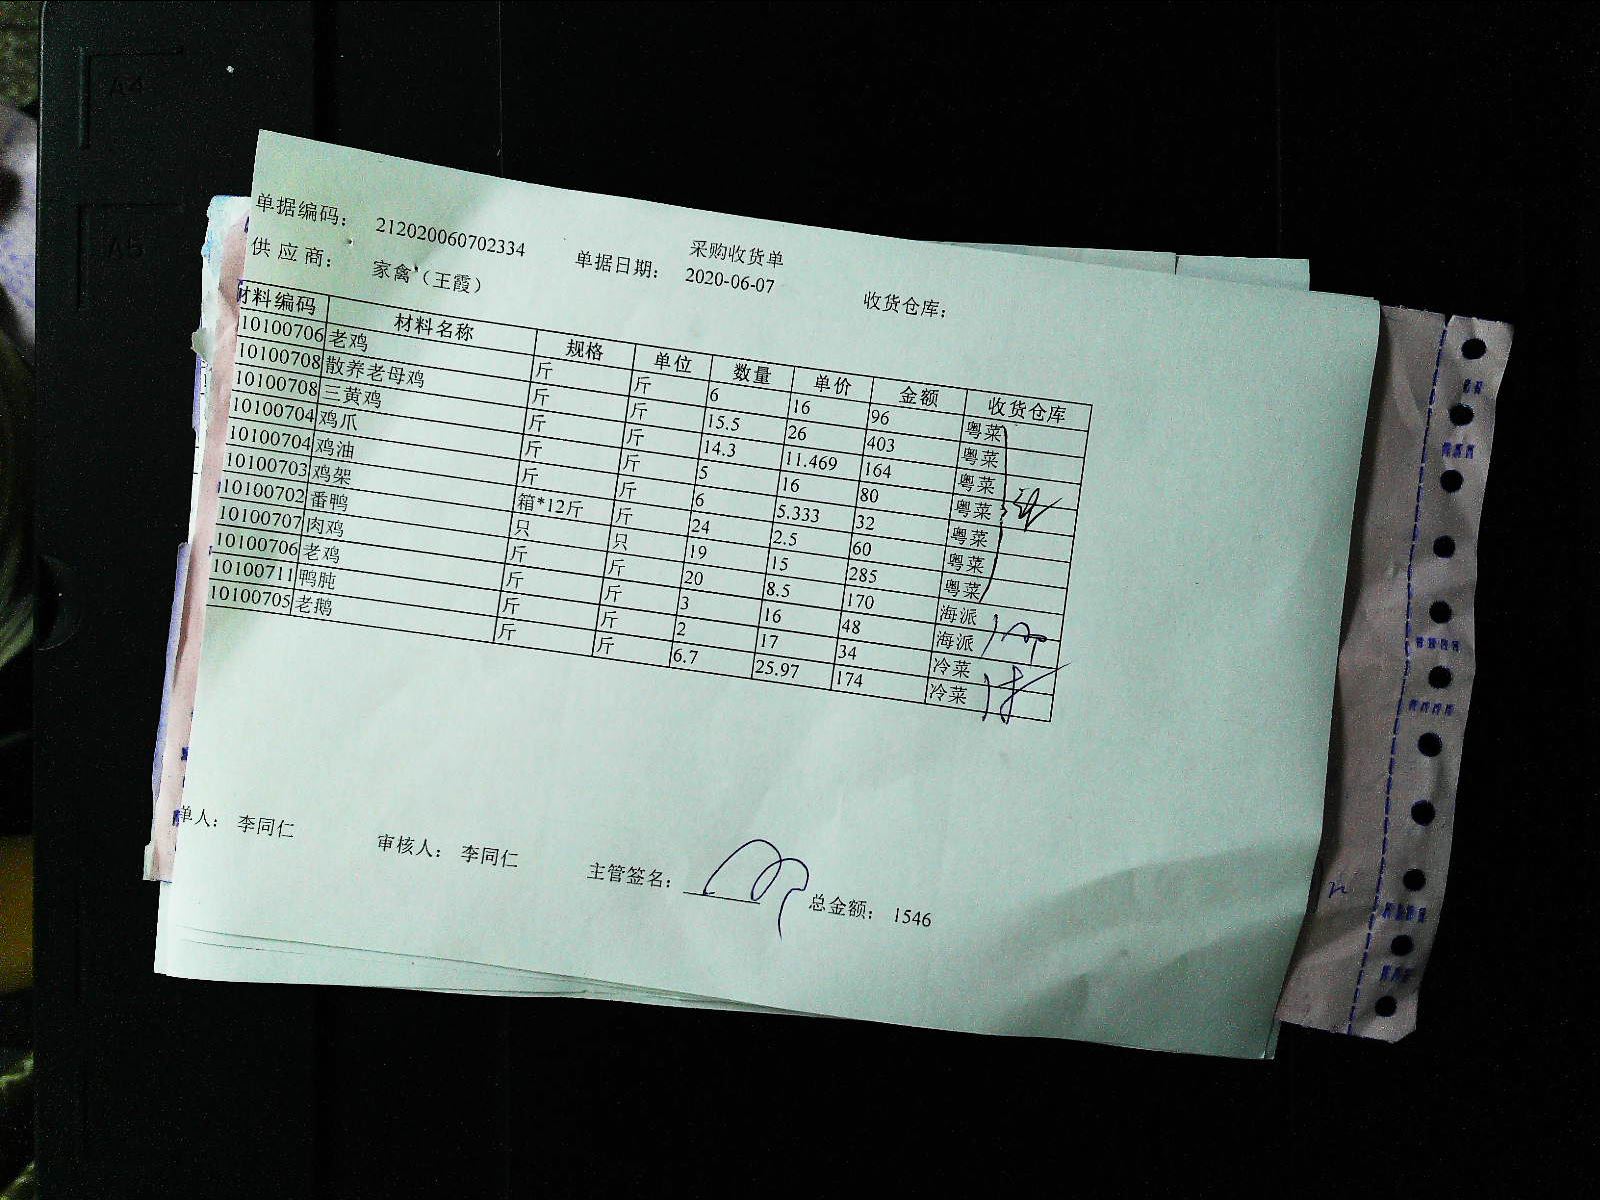 采购收货单
单据编码： 212020060702334 单据日期： 2020-06-07 收货仓库：
供应商： 家禽（王霞）
材料编码 材料名称 规格 单位 数量 单价 金额 收货仓库
10100706 老鸡 斤 斤 6 16 96 粤菜
10100708 散养老母鸡 斤 斤 15.5 26 403 粤菜
10100708 三黄鸡 斤 斤 14.3 11.469 164 粤菜
10100704 鸡爪 斤 斤 5 16 80 粤菜
10100704 鸡油 斤 斤 6 5.333 32 粤菜
10100703 鸡架 箱*12斤 斤 24 2.5 60 粤菜
10100702 番鸭 只 只 19 15 285 粤菜
10100707 肉鸡 斤 斤 20 8.5 170 海派
10100706 老鸡 斤 斤 3 16 48 海派
10100711 鸭肫 斤 斤 2 17 34 冷菜
10100705 老鹅 斤 斤 6.7 25.97 174 冷菜
单人： 李同仁 审核人： 李同仁 主管签名： 总金额： 1546
A4
A5